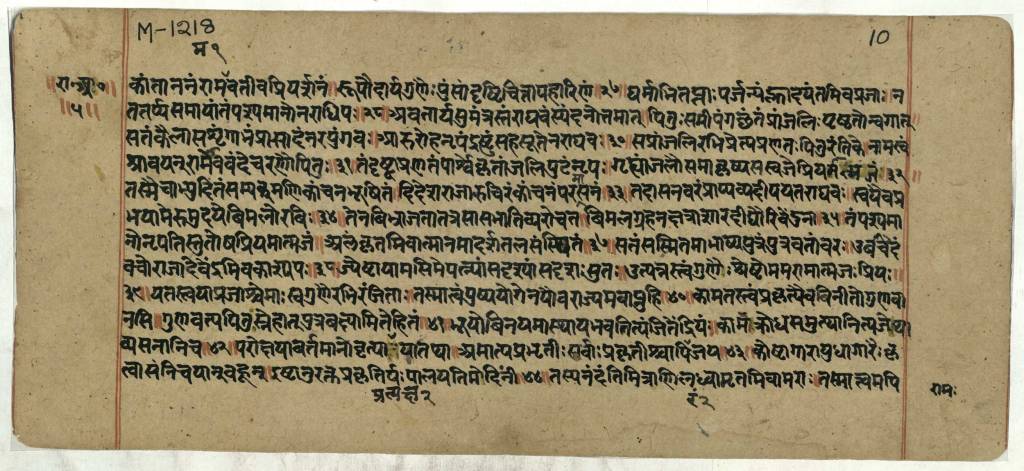 M-1218
म १
10
॥ रा॰ अयो॰ ॥
॥ ५ ॥
कांताननं राममतीवप्रियदर्शनं रूपौदार्यगुणैः पुंसां दृष्टिचित्तापहारिणं २७ घर्माभितप्ताः पर्जन्यं ह्लादयंतमिव प्रजाः न
ततर्प्य समायांतं पश्यमानो नराधिपः २८ अवतार्य सुमंत्रस्तं राघवं स्यंदनोत्तमात् पितुः समीपं गछंतं प्रांजलिः पृष्टतोन्वगात्
स तं कैलासशृंगाभं प्रासादं नरपुंगवः आरुरोह नृपं द्रष्टुं सह सूतेन राघवः ३० स प्रांजलिरभिप्रेत्य प्रणतः पितुरंतिके नाम स्वं
श्रावयन् रामो ववंदे चरणौ पितुः ३१ तं दृष्ट्वा प्रणतं पार्श्वे कृतांजलिपुटं नृपः गृह्यांजलौ समाकृष्य सस्वजे प्रियमात्मजं ३२
तस्मै चाभ्युदितं सम्यङ्मणिकांचनभूषितं दिदेश राजा रुचिरं कांचनं परमासनं ३३ तदासनवरं प्राप्य व्यदीपयत राघवः स्वयैव प्र
भया मेरुमुदये विमलो रविः ३४ तेन विभ्राजता तत्र सा सभातिव्यरोचत विमलग्रहनक्षत्रा शारदी द्यौरिवेंदुना ३५ तं पश्यमा
नो नृपतिस्तुतोष प्रियमात्मजं अलंकृतमिवात्मानमादर्शतलसंस्थितं ३६ स तं सस्मितमाभाष्य पुत्रं पुत्रवतां वरः उवाचेदं
वचो राजा देवेंद्रमिव काश्यपः ३८ ज्येष्टायामसि मे पत्न्यां सदृश्यां सदृशः सुतः उत्पन्नस्त्वं गुणैः श्रेष्टो मम रामात्मजः प्रियः ॥
३९ यतस्त्वया प्रजाश्चेमाः स्वगुणैरभिरंजिताः तस्मात्त्वं पुष्ययोगेन यौवराज्यमवाप्नुहि ४० कामतस्त्वं प्रकृत्यैव विनीतो गुणवा
नसि गुणवत्यपि तु स्नेहात् पुत्र वक्ष्यामि ते हितं ४१ भूयो विनयमास्थाय भव नित्यं जितेंद्रियः कामक्रोधसमुत्थानि त्यजेथा
व्यसनानि च ४२ परोक्षया वर्तमानो वृत्त्या प्रत्यक्षया तथा अमात्यप्रभृतीः सर्वाः प्रकृतीश्चापि रंजय ४३ कोष्टागारायुधागारैः कृ
त्वा संनिचयान् बहून् इष्टानुरक्तप्रकृतिर्यः पालयति मेदिनीं ४४ तस्य नंदंति मित्राणि लब्ध्वामृतमिवामराः तस्मात्त्वमपि
प्रत्यक्ष २
रं २
रामः